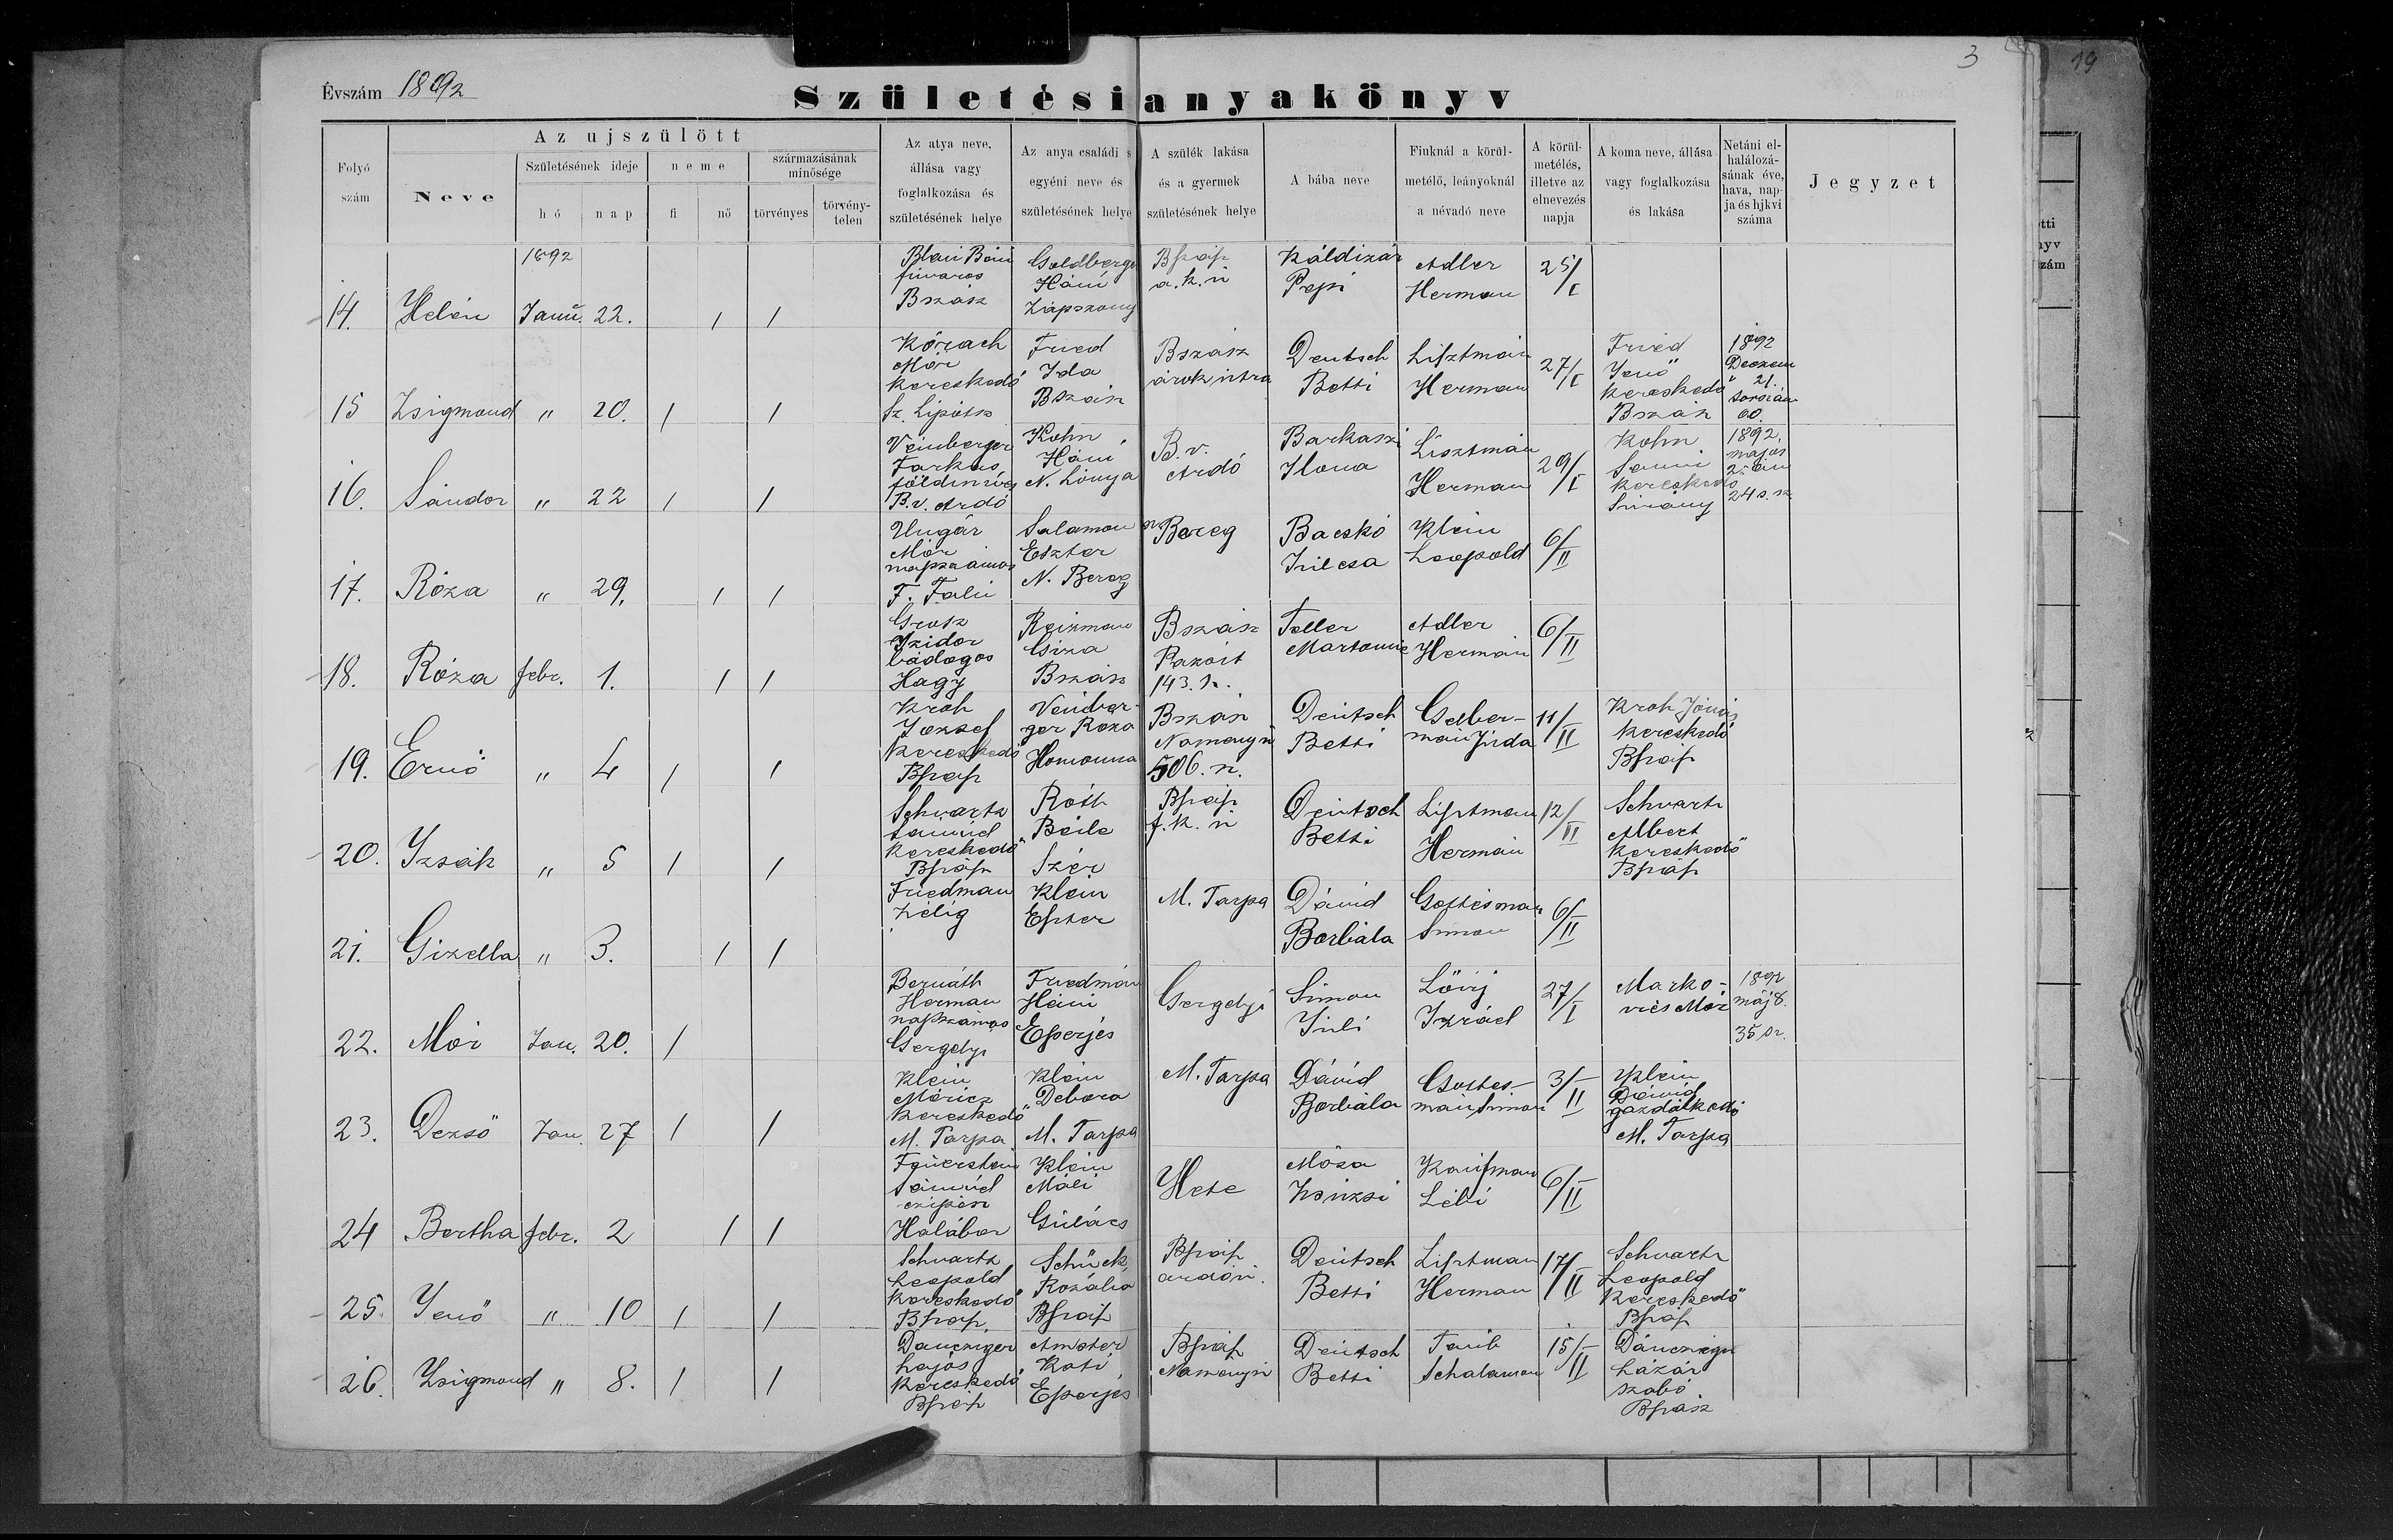 3
19
Évszám 1892
Születési anyakönyv
Folyó szám
Az ujszülött
Neve
Születésének ideje
hó
nap
neme
fi
nő
származásának minősége
törvényes
törvénytelen
Az atya neve, állása vagy foglalkozása és születésének helye
Az anya családi s egyéni neve és születésének helye
A szülék lakása és a gyermek születésének helye
A bába neve
Fiuknál a körülmetélő, leányoknál a névadó neve
A körülmetélés, illetve az elnevezés napja
A koma neve, állása vagy foglalkozása és lakása
Netáni elhalálozásának éve, hava, napja és hjkvi száma
Jegyzet
1892
14. Helén Janu. 22. 1 1 Blau fuvaros Bszász Goldberger Háni Zápszony a. k. u Pepi Adler Herman 25/I
15 Zsigmond " 20. 1 1 Mór kereskedő Sz. Lipótsz Fried Ida Bszász Bszász árok utza Deutsch Betti Lisztman Herman 27/I Fried Jenő kereskedő Bszász 1892 Deczem 21. 60
16. Sándor " 22 1 1 Veinberger Farkas földmíves B.v. Ardó Kohn Háni N. Lónya B. v. Ardó Barkaszi Ilona Lisztmán Herman 29/I Kohn Sami kereskedő Surány 1892. majos 2-án 24 s. sz
17. Róza " 29. 1 1 Ungár Mór napszámos F. Falu Salamon Eszter N. Bereg N Bereg Bacskó Julcsa Klein Leopold 6/II
18. Róza febr. 1. 1 1 Grosz Izidor bádogos Hagy Reizman Giza Bszász Bszász 143. sz. Feller Adler Herman 6/II
19. Ernő " 4 1 1 Kroh Jozsef kereskedő Bszász Veinberger Roza Homonna Bszász Namenyi 506. n. Deutsch Betti Gelberman Juda 11/II Kroh Jónás kereskedő Bszász
20. Izsák " 5 1 1 Schwartz Sámuel kereskedő Bszász Róth Béile Szér Bszász f. k. u Deutsch Betti Lisztman Herman 12/II Schvartz Albert kereskedő Bszász
21. Gizella " 3. 1 1 Friedman Zélig Klein Eszter M. Tarpa Dávid Borbála Gottesman Simon 6/II
22. Mór Jan. 20. 1 Bernáth Herman napszámos Gergelyi Friedmán Háni Eperjes Gergelyi Simon Juli Löwy Izráel 27/I Markovics Mór 1892 máj 8. 35 sz.
23. Dezső Jan. 27 1 1 Klein Móricz kereskedő M. Tarpa Klein Debora M. Tarpa M. Tarpa Dávid Borbála Gottesman Simon 3/II Klein Dávid gazdálkodó M. Tarpa
24 Bertha febr. 2 1 1 Feuerstein Sámuel czipész Halábor Klein Máli Gulács Hete Móza Zsuzsi Kaufman Lébi 6/II
25. Jenő " 10 1 1 Schvartz Leopold kereskedő Bszász Schück Rozália Bszász Bszász ardói Deutsch Betti Lisztman Herman 17/II Schvartz Leopold kereskedő Bszász
26. Zsigmond " 8. 1 1 Dancziger Lajos kereskedő Bszász Amster Kati Eperjes Bszász Namenyi Deutsch Betti Taub Schalamon 15/II Dancziger Lázár szabó Bszász